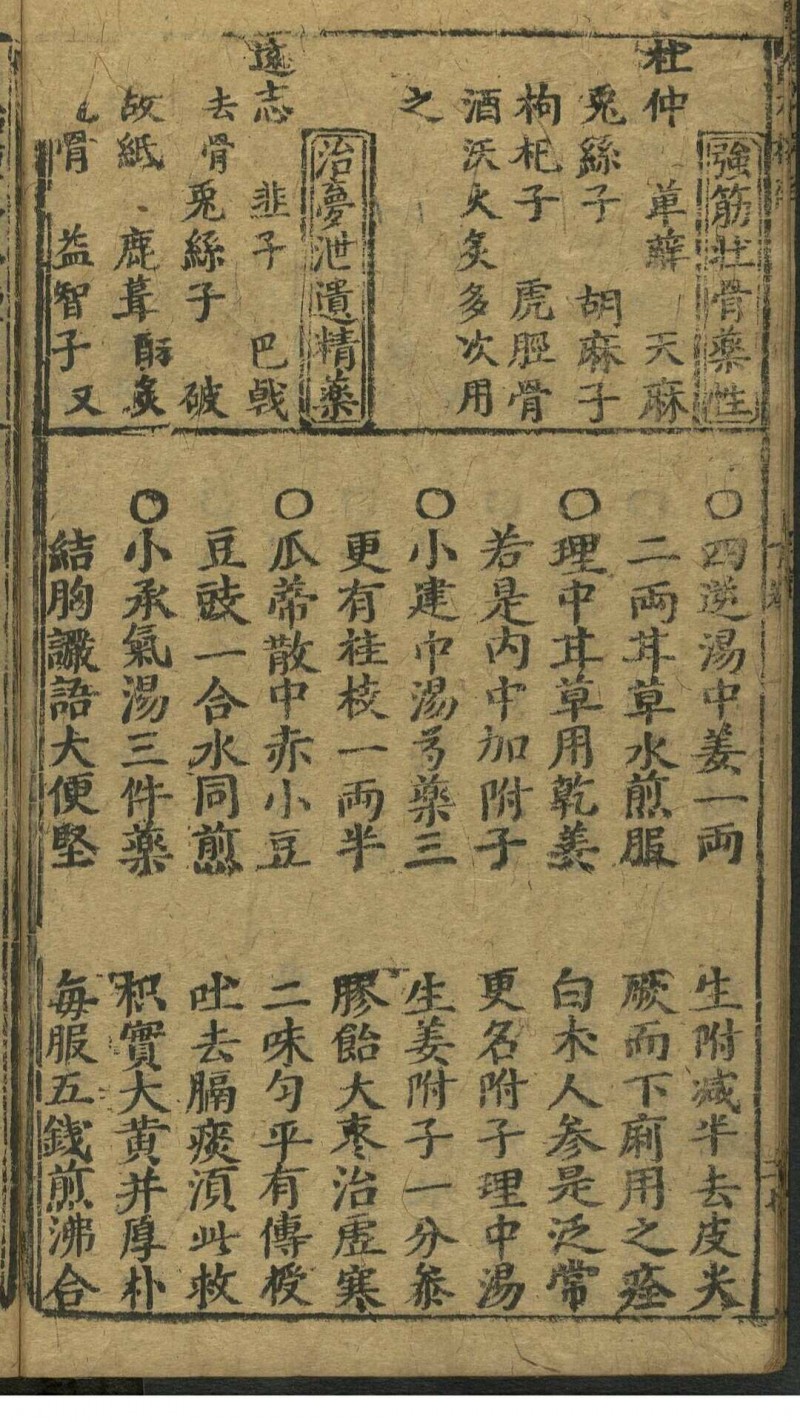 強筋壯骨藥性
杜仲 萆薢 天麻
兎絲子 胡麻子
枸杞子 虎脛骨
酒沃火炙多次用
之
治夢泄遺精藥
遠志 韭子 巴戟
去骨兎絲子 破
故紙 鹿茸酥炙
骨 益智子 又
〇四逆湯中姜一兩 生附减半去皮尖
二兩甘草水煎服 厥而下廁用之痊
〇理中甘草用乾姜 白朮人参是泛常
若是內中加附子 更名附子理中湯
〇小建中湯芍藥三 生姜附子一分參
更有桂枝一兩半 膠飴大棗治虛寒
〇瓜蒂散中赤小豆 二味匀平有傳授
豆豉一合水同煎 吐去膈痰湏此救
〇小承氣湯三件藥 枳實大黄并厚朴
結胸讝語大便堅 每服五錢煎沸合